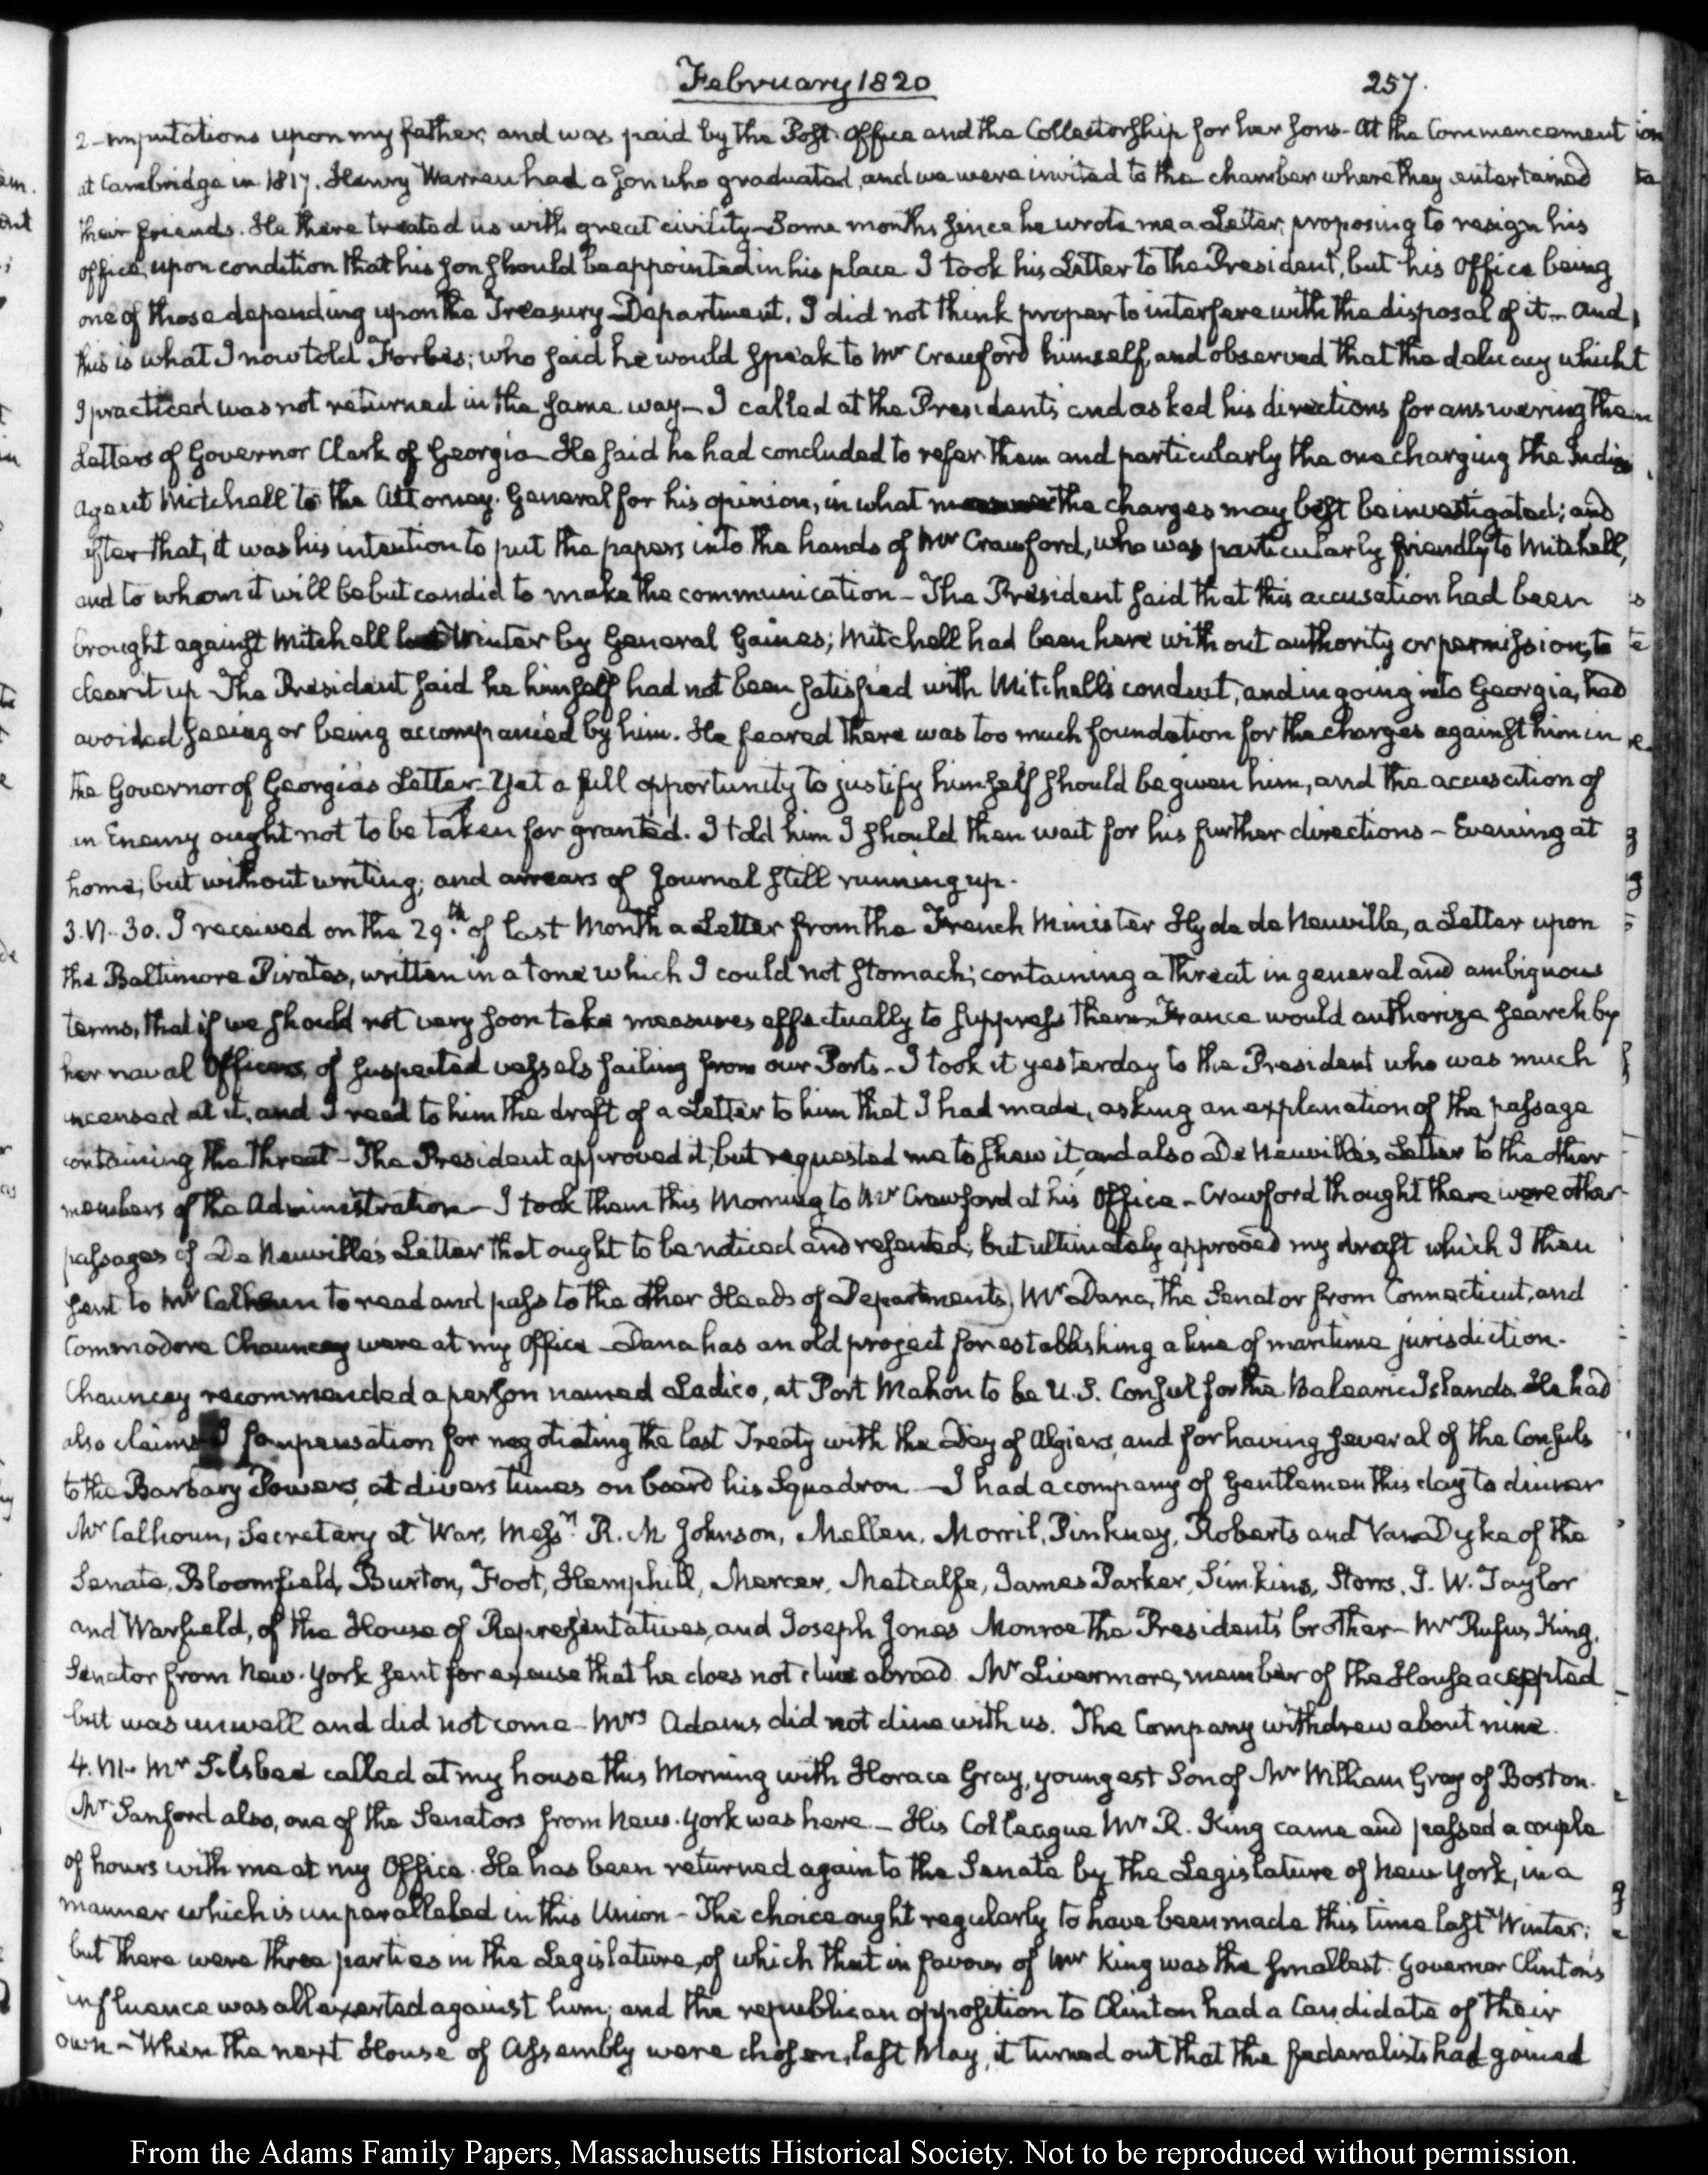 February 1820
257.
2 - imputations upon my father, and was paid by the Post-Office and the Collectorship for her sons - At the Commencement
at Cambridge in 1817. Henry Warren had a son who graduated, and we were invited to the chamber where they entertained
their friends. He there treated us with great civility - Some months since he wrote me a Letter, proposing to resign his
office, upon condition that his son should be appointed in his place. I took his Letter to the President, but his Office being
one of those depending upon the Treasury Department, I did not think proper to interfere with the disposal of it - And
this is what I now told Forbes; who said he would speak to Mr Crawford himself, and observed that the delicacy which
I practiced was not returned in the same way - I called at the President's and asked his directions for answering the
Letters of Governor Clark of Georgia - He said he had concluded to refer them and particularly the one charging the Indian
Agent Mitchell to the Attorney-General for his opinion, in what the charges may best be investigated; and
after that, it was his intention to put the papers into the hands of Mr Crawford, who was particularly friendly to Mitchell,
and to whom it will be but candid to make the communication - The President said that this accusation had been
brought against Mitchell last Winter by General Gaines; Mitchell had been here without authority or permission, to
clear it up - The President said he himself had not been satisfied with Mitchell's conduct, and in going into Georgia, had
avoided seeing or being accompanied by him. He feared there was too much foundation for the charges against him in
the Governor of Georgia's Letter - Yet a full opportunity to justify himself should be given him, and the accusation of
an Enemy ought not to be taken for granted. I told him I should then wait for his further directions - Evening at
home; but without writing; and arrears of Journal still running up.
3. VI. 30. I received on the 29th. of last Month a Letter from the French Minister Hyde de Neuville, a Letter upon
the Baltimore Pirates, written in a tone which I could not stomach; containing a threat in general and ambiguous
terms, that if we should not very soon take measures effectually to suppress them France would authorize search by
her naval Officers, of suspected vessels sailing from our Ports - I took it yesterday to the President who was much
incensed at it, and I read to him the draft of a Letter to him that I had made, asking an explanation of the passage
containing the threat - The President approved it, but requested me to shew it, and also De Neuville's Letter to the other
members of the Administration - I took them this Morning to Mr Crawford at his Office - Crawford thought there were other
passages of De Neuville's Letter that ought to be noticed and resented; but ultimately approved my draft which I then
sent to Mr Calhoun to read and pass to the other Heads of Departments. Mr Dana, the Senator from Connecticut, and
Commodore Chauncey were at my Office - Dana has an old project for establishing a line of maritime jurisdiction.
Chauncey recommended a person named Ladico, at Port Mahon to be U.S. Consul for the Balearic Islands. He had
also claims compensation for negotiating the last Treaty with the Dey of Algiers, and for having several of the Consuls
to the Barbary Powers, at divers times on board his Squadron - I had a company of Gentlemen this day to dinner
Mr Calhoun, Secretary at War, Messrs R. M Johnson, Mellen, Morril, Pinkney, Roberts and Van Dyke of the
Senate, Bloomfield, Burton, Foot, Hemphill, Mercer, Metcalfe, James Parker, Simkins, Storrs, J. W. Taylor
and Warfield, of the House of Representatives, and Joseph Jones Monroe the President's brother - Mr Rufus King,
Senator from New-York sent for excuse that he does not dine abroad. Mr Livermore, member of the House accepted
but was unwell and did not come - Mrs Adams did not dine with us. The Company withdrew about nine.
4. VI. Mr Silsbee called at my house this Morning with Horace Gray, youngest Son of Mr William Gray of Boston.
Mr Sanford also, one of the Senators from New-York was here - His Colleague Mr R. King came and passed a couple
of hours with me at my Office. He has been returned again to the Senate by the Legislature of New York, in a
manner which is unparalleled in this Union - The choice ought regularly to have been made this time last Winter;
but there were three parties in the Legislature, of which that in favour of Mr King was the smallest. Governor Clinton's
influence was all exerted against him; and the republican opposition to Clinton had a Candidate of their
own - When the next House of Assembly were chosen, last May, it turned out that the federalists had gained
From the Adams Family Papers, Massachusetts Historical Society. Not to be reproduced without permission.